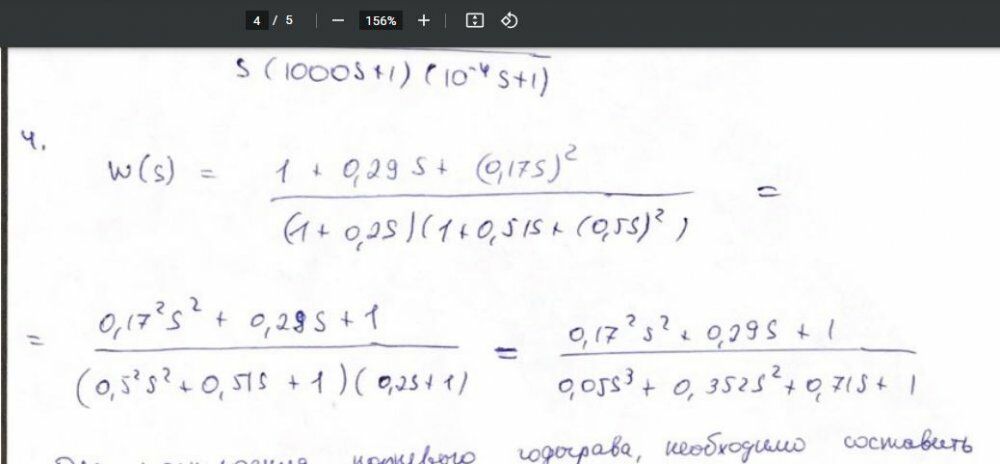 4 / 5 156%
s (1000s+1) (10⁻⁴s+1)
4.
W(s) = 1 + 0,29s + (0,17s)²
(1 + 0,2s)(1+0,51s + (0,5s)²) =
= 0,17²s² + 0,29s + 1
(0,5²s² + 0,51s + 1)(0,2s+1) = 0,17²s² + 0,29s + 1
0,05s³ + 0,352s² + 0,71s + 1
годографа, необходимо составить